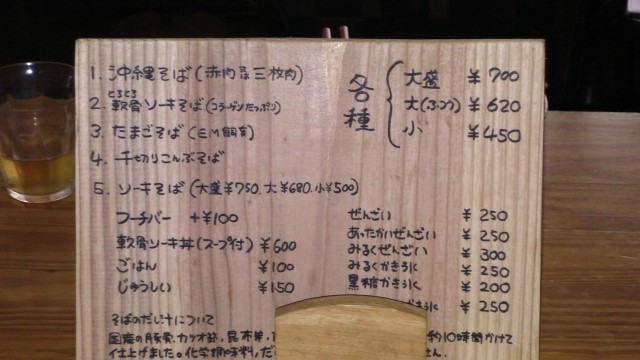 1. 沖縄そば(赤肉又は三枚肉)
とろとろ
2. 軟骨ソーキそば(コラーゲンたっぷり)
3. たまごそば(EM飼育)
4. 千切りこんぶそば
各種
大盛 ¥700
大(ふつう) ¥620
小 ¥450
5. ソーキそば(大盛¥750.大¥680.小¥500)
フーチバー +¥100
軟骨ソーキ丼(スープ付) ¥600
ごはん ¥100
じゅうしい ¥150
ぜんざい ¥250
あったかいぜんざい ¥250
みるくぜんざい ¥300
みるくかき氷 ¥250
黒糖かき氷 ¥200
かき氷 ¥250
そばのだし汁について
国産の豚骨.カツオ節.昆布等. 約10時間かけて
仕上げました。化学調味料.だ せん.